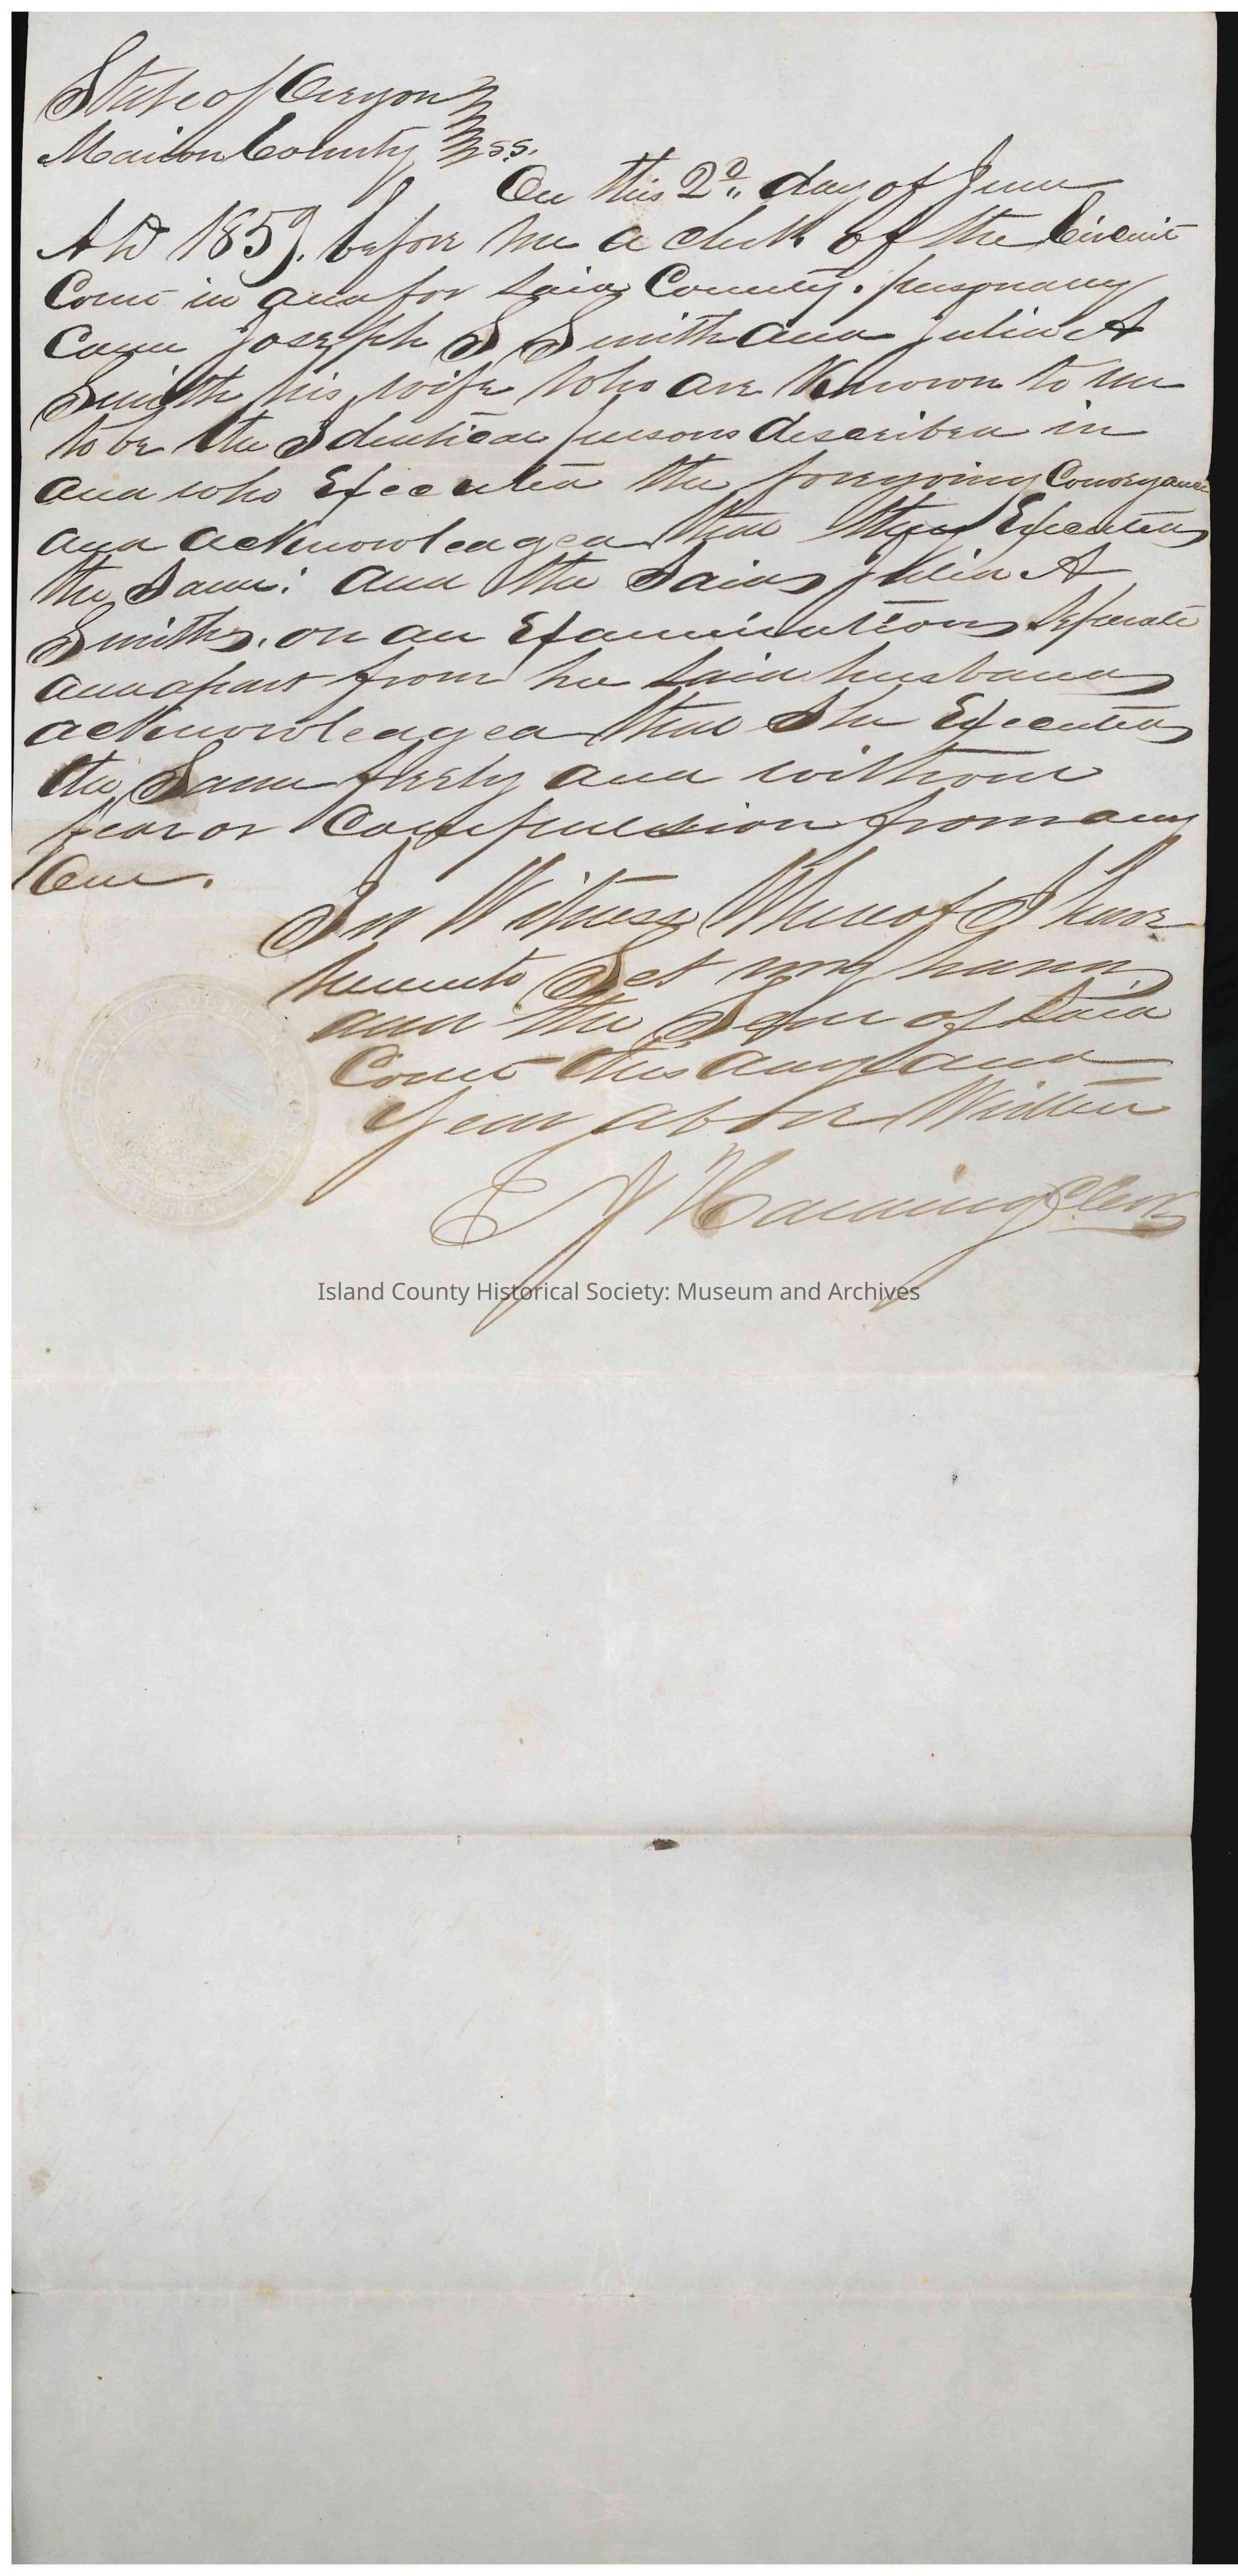 State of Oregon
Marion County } ss.
On this 2d day of June
A D 1859. before me a clerk of the Circuit
Court in and for said County. personally
Came Joseph S Smith and Julia A
Smith his wife who are Known to me
to be the Identical persons described in
and who Executed the foregoing Conveyance
and acknowledged that they Executed
the Same: and the Said Julia A
Smith, on an Examination Separate
and apart from her said husband
acknowledged that She Executed
the Same freely and without
fear or Compulsion from any
One.
In Witness Whereof I have
hereunto Set my hand
and the Seal of said
Court this day and
Year above Written
Clerk
Island County Historical Society: Museum and Archives